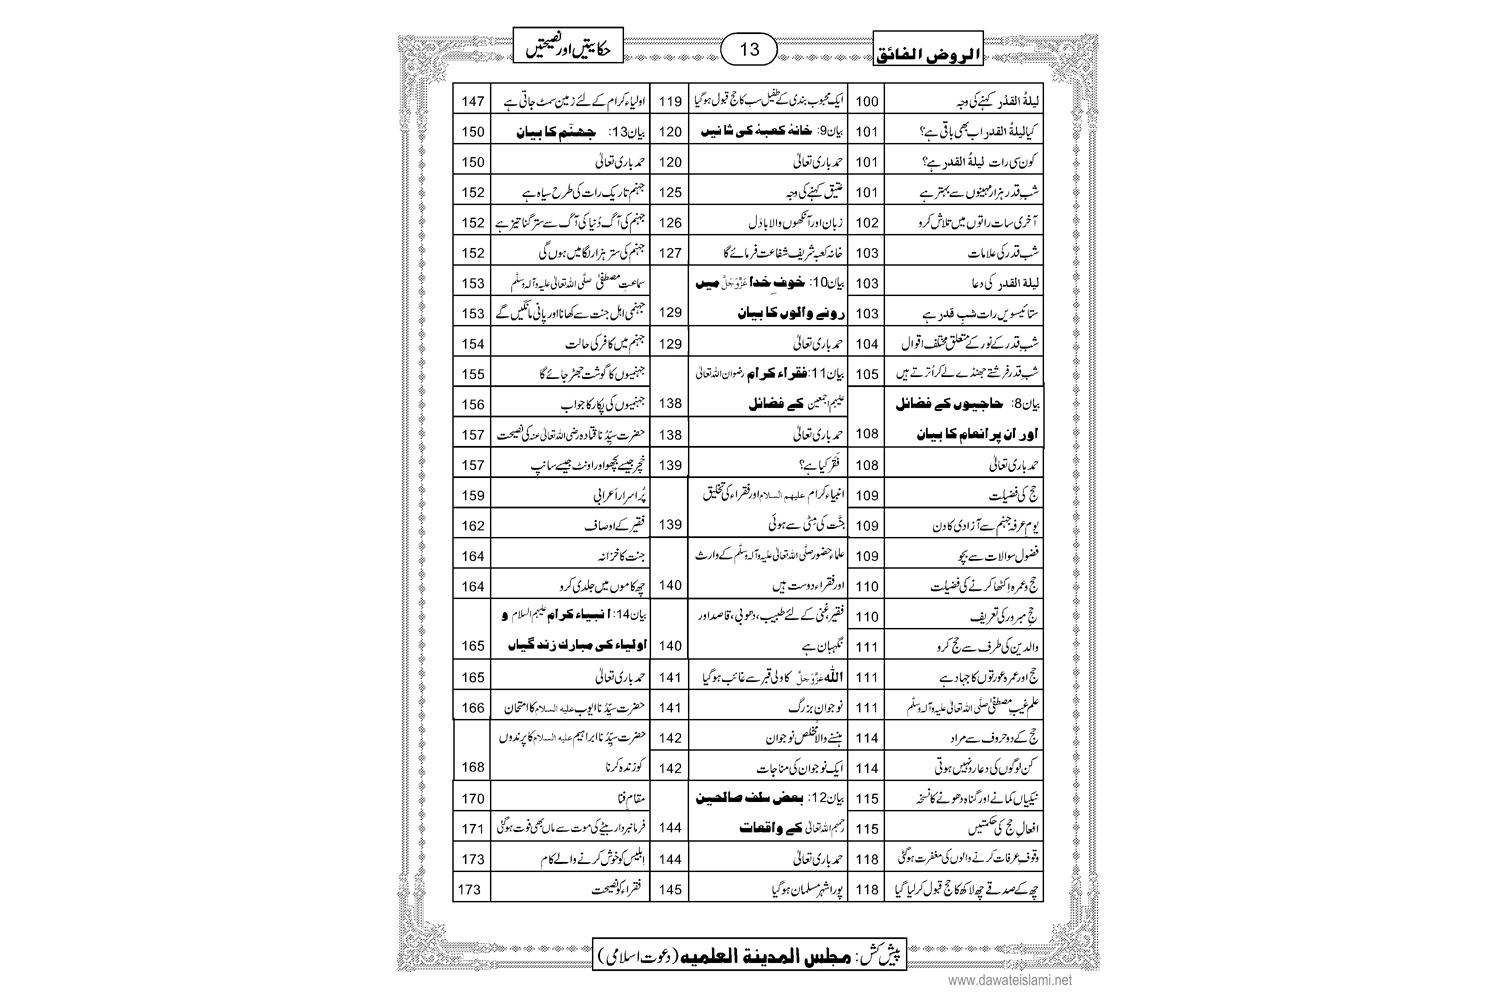 الروض الفائق
13
حکایتیں اور نصیحتیں
لیلۃُ القدْر کہنے کی وجہ 100
کیا لیلۃُ القدر اب بھی باقی ہے؟ 101
کون سی رات لیلۃُ القدر ہے؟ 101
شبِ قدر ہزار مہینوں سے بہتر ہے 101
آخری سات راتوں میں تلاش کرو 102
شبِ قدر کی علامات 103
لیلۃ القدر کی دعا 103
ستائیسویں رات شبِ قدر ہے 103
شبِ قدر کے نور کے متعلق مختلف اقوال 104
شبِ قدر فرشتے جھنڈے لے کر اُترتے ہیں 105
بیان8: حاجیوں کے فضائل
اور ان پر انعام کا بیان 108
حمد باری تعالیٰ 108
حج کی فضیلت 109
یومِ عرفہ جہنم سے آزادی کا دن 109
فضول سوالات سے بچو 109
حج و عمرہ اِکٹھا کرنے کی فضیلت 110
حجِ مبرور کی تعریف 110
والدین کی طرف سے حج کرو 111
حج اور عمرہ عورتوں کا جہاد ہے 111
علمِ غیبِ مصطفیٰ صلَّی اللہ تعالیٰ علیہ وآلہ وسلَّم 111
حج کے دو حروف سے مراد 114
کن لوگوں کی دعا رد نہیں ہوتی 114
نیکیاں کمانے اور گناہ دھونے کا نسخہ 115
افعالِ حج کی حکمتیں 115
وقوفِ عرفات کرنے والوں کی مغفرت ہو گئی 118
چھ کے صدقے چھ لاکھ کا حج قبول کر لیا گیا 118
ایک محبوب بندی کے طفیل سب کا حج قبول ہو گیا 119
بیان9: خانۂ کعبہ کی شانیں 120
حمد باری تعالیٰ 120
عتیق کہنے کی وجہ 125
زبان اور آنکھوں والا بادَل 126
خانہ کعبہ شریف شفاعت فرمائے گا 127
بیان10: خوفِ خدا عَزَّوَجَلَّ میں
رونے والوں کا بیان 129
حمد باری تعالیٰ 129
بیان11: فقراء کرام رضوان اللہ تعالیٰ
علیہم اجمعین کے فضائل 138
حمد باری تعالیٰ 138
فَقْر کیا ہے؟ 139
انبیاء کرام علیہم السلام اور فقراء کی تخلیق
جنَّت کی مِٹّی سے ہوئی 139
علماء حضور صلَّی اللہ تعالیٰ علیہ وآلہ وسلَّم کے وارث
اور فقراء دوست ہیں 140
فقیر غنی کے لئے طبیب، دھوبی، قاصد اور
نگہبان ہے 140
اللہ عَزَّوَجَلَّ کا ولی قبر سے غائب ہو گیا 141
نوجوان بزرگ 141
ہنسنے والا مُخلِص نوجوان 142
ایک نوجوان کی مناجات 142
بیان12: بعض سلف صالحین
رحمہم اللہ تعالیٰ کے واقعات 144
حمد باری تعالیٰ 144
پورا شہر مسلمان ہو گیا 145
اولیاء کرام کے لئے زمین سمٹ جاتی ہے 147
بیان13: جھنّم کا بیان 150
حمد باری تعالیٰ 150
جہنم تاریک رات کی طرح سیاہ ہے 152
جہنم کی آگ دُنیا کی آگ سے ستر گنا تیز ہے 152
جہنم کی ستر ہزار لگامیں ہوں گی 152
سماعتِ مصطفیٰ صلَّی اللہ تعالیٰ علیہ وآلہ وسلَّم 153
جہنمی اہل جنت سے کھانا اور پانی مانگیں گے 153
جہنم میں کافر کی حالت 154
جہنمیوں کا گوشت جھڑ جائے گا 155
جہنمیوں کی پکار کا جواب 156
حضرت سیِّدُنا قتادہ رضی اللہ تعالیٰ عنہ کی نصیحت 157
خچر جیسے بچھو اور اونٹ جیسے سانپ 157
پُراسرار اَعرابی 159
فقیر کے اوصاف 162
جنت کا خزانہ 164
چھ کاموں میں جلدی کرو 164
بیان14: انبیاء کرام علیہم السلام و
اولیاء کی مبارك زندگیاں 165
حمد باری تعالیٰ 165
حضرت سیِّدُنا ایوب علیہ السلام کا امتحان 166
حضرت سیِّدُنا ابراہیم علیہ السلام کا پرندوں
کو زندہ کرنا 168
مقامِ فنا 170
فرمانبردار بیٹے کی موت سے ماں بھی فوت ہو گئی 171
اِبلیس کو خوش کرنے والے کام 173
فقراء کو نصیحت 173
پیش کش: مجلس المدینۃ العلمیہ (دعوت اسلامی)
www.dawateislami.net